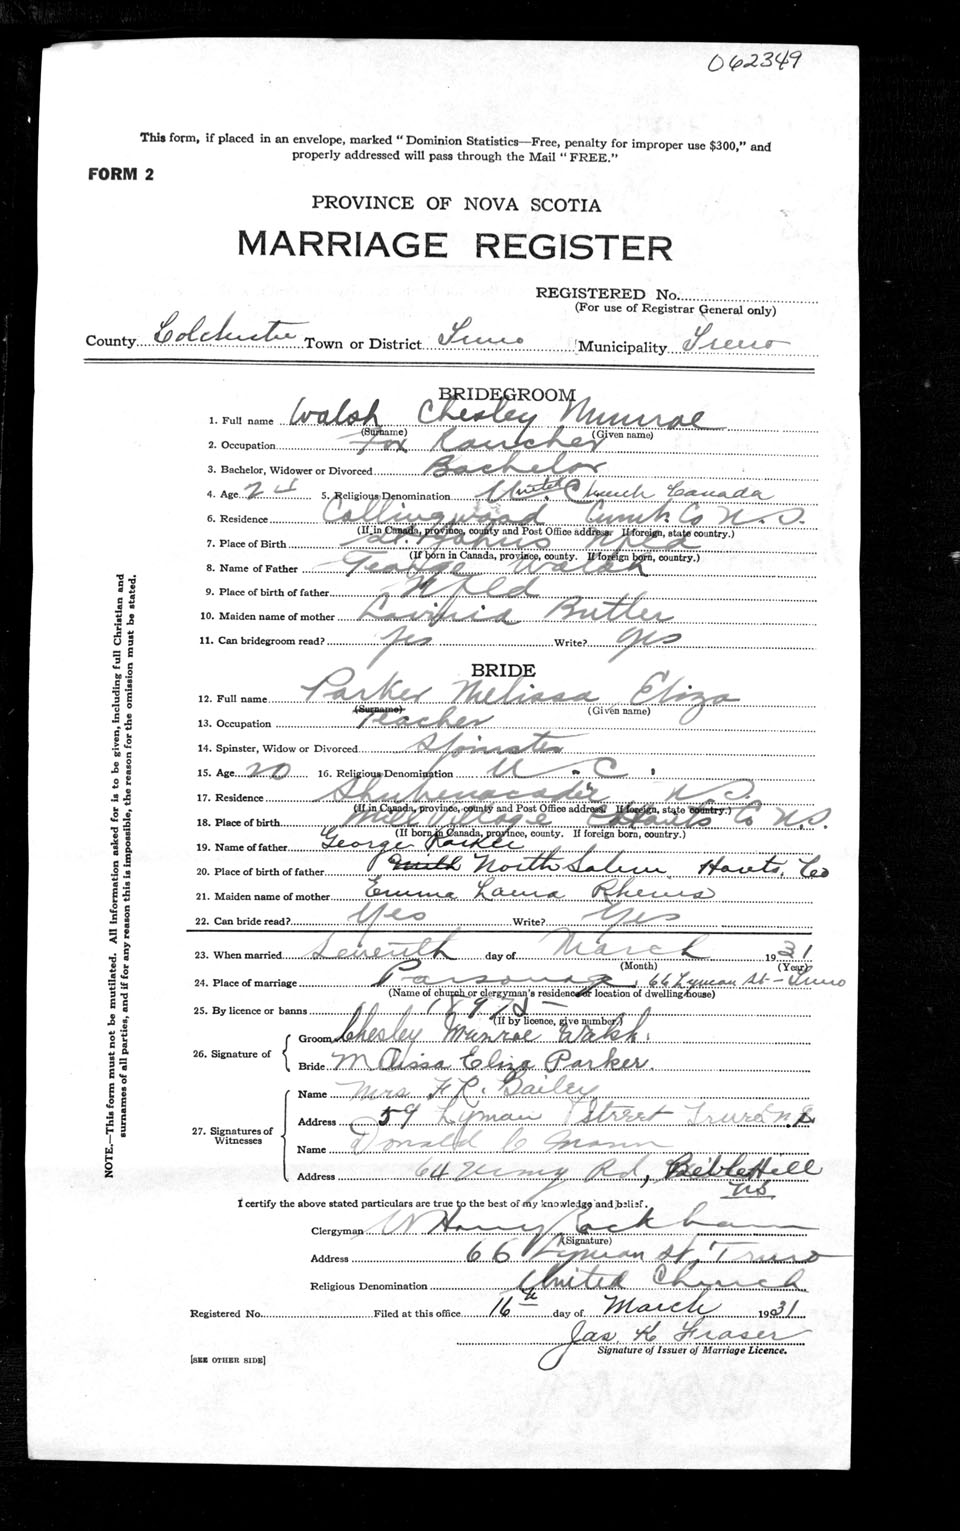 062349
This form, if placed in an envelope, marked "Dominion Statistics—Free, penalty for improper use $300," and
properly addressed will pass through the Mail "FREE."
FORM 2
PROVINCE OF NOVA SCOTIA
MARRIAGE REGISTER
REGISTERED No.
(For use of Registrar General only)
County Colchester Town or District Truro Municipality Truro
BRIDEGROOM
1. Full name Walsh Chesley Munroe
(Surname) (Given name)
2. Occupation Fox Rancher
3. Bachelor, Widower or Divorced Bachelor
4. Age 24 5. Religious Denomination United Church Canada
6. Residence Collingwood Cumb. Co N.S.
(If in Canada, province, county and Post Office address. If foreign, state country.)
7. Place of Birth St. Johns Nfld
(If born in Canada, province, county. If foreign born, country.)
8. Name of Father George Walsh
9. Place of birth of father Nfld
10. Maiden name of mother Lavinia Butler
11. Can bridegroom read? yes Write? yes
BRIDE
12. Full name Parker Melissa Eliza
(Surname) (Given name)
13. Occupation Teacher
14. Spinster, Widow or Divorced Spinster
15. Age 20 16. Religious Denomination U. C.
17. Residence Shubenacadie N.S.
(If in Canada, province, county and Post Office address. If foreign, state country.)
18. Place of birth Mill Village Hants Co N.S.
(If born in Canada, province, county. If foreign born, country.)
19. Name of father George Parker
20. Place of birth of father North Salem Hants. Co
21. Maiden name of mother Emma Laura Rhenis
22. Can bride read? Yes Write? Yes
23. When married Seventh day of March 1931
(Month) (Year)
24. Place of marriage Parsonage, 66 Lyman St - Truro
(Name of church or clergyman's residence or location of dwelling house)
25. By licence or banns
(If by licence, give number)
26. Signature of
Groom Chesley Munroe Walsh.
Bride Melissa Eliza Parker.
27. Signatures of Witnesses
Name Mrs F R. Bailey
Address 59 Lyman Street Truro N.S
Name Donald C Mann
Address 64 Vimy Rd, Bible Hill
NS
I certify the above stated particulars are true to the best of my knowledge and belief.
Clergyman W Harry Rackham
(Signature)
Address 66 Lyman St, Truro
Religious Denomination United Church
Registered No. Filed at this office 16th day of March 1931
Jas. K Fraser
Signature of Issuer of Marriage Licence.
[SEE OTHER SIDE]
NOTE.—This form must not be mutilated. All information asked for is to be given, including full Christian and
surnames of all parties, and if for any reason this is impossible, the reason for the omission must be stated.